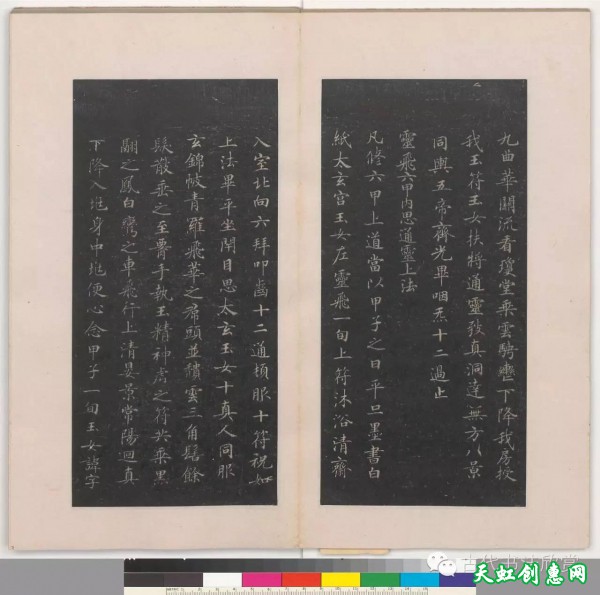 九曲華關流看瓊堂乘雲騎轡下降我房授
我玉符玉女扶將通靈致真洞達無方八景
同輿五帝齊光畢咽炁十二過止
靈飛六甲內思通靈上法
凡修六甲上道當以甲子之日平旦墨書白
紙太玄宮玉女左靈飛一旬上符沐浴清齋
入室北向六拜叩齒十二通頓服十符祝如
上法畢平坐閉目思太玄玉女十真人同服
玄錦帔青羅飛華之帬頭並頹雲三角髻餘
髮散垂之至𦝫手執玉精神虎之符共乘黑
翮之鳳白鸞之車飛行上清晏景常陽迴真
下降入地身中地便心念甲子一旬玉女諱字
古代书法欣赏
天虹创惠网